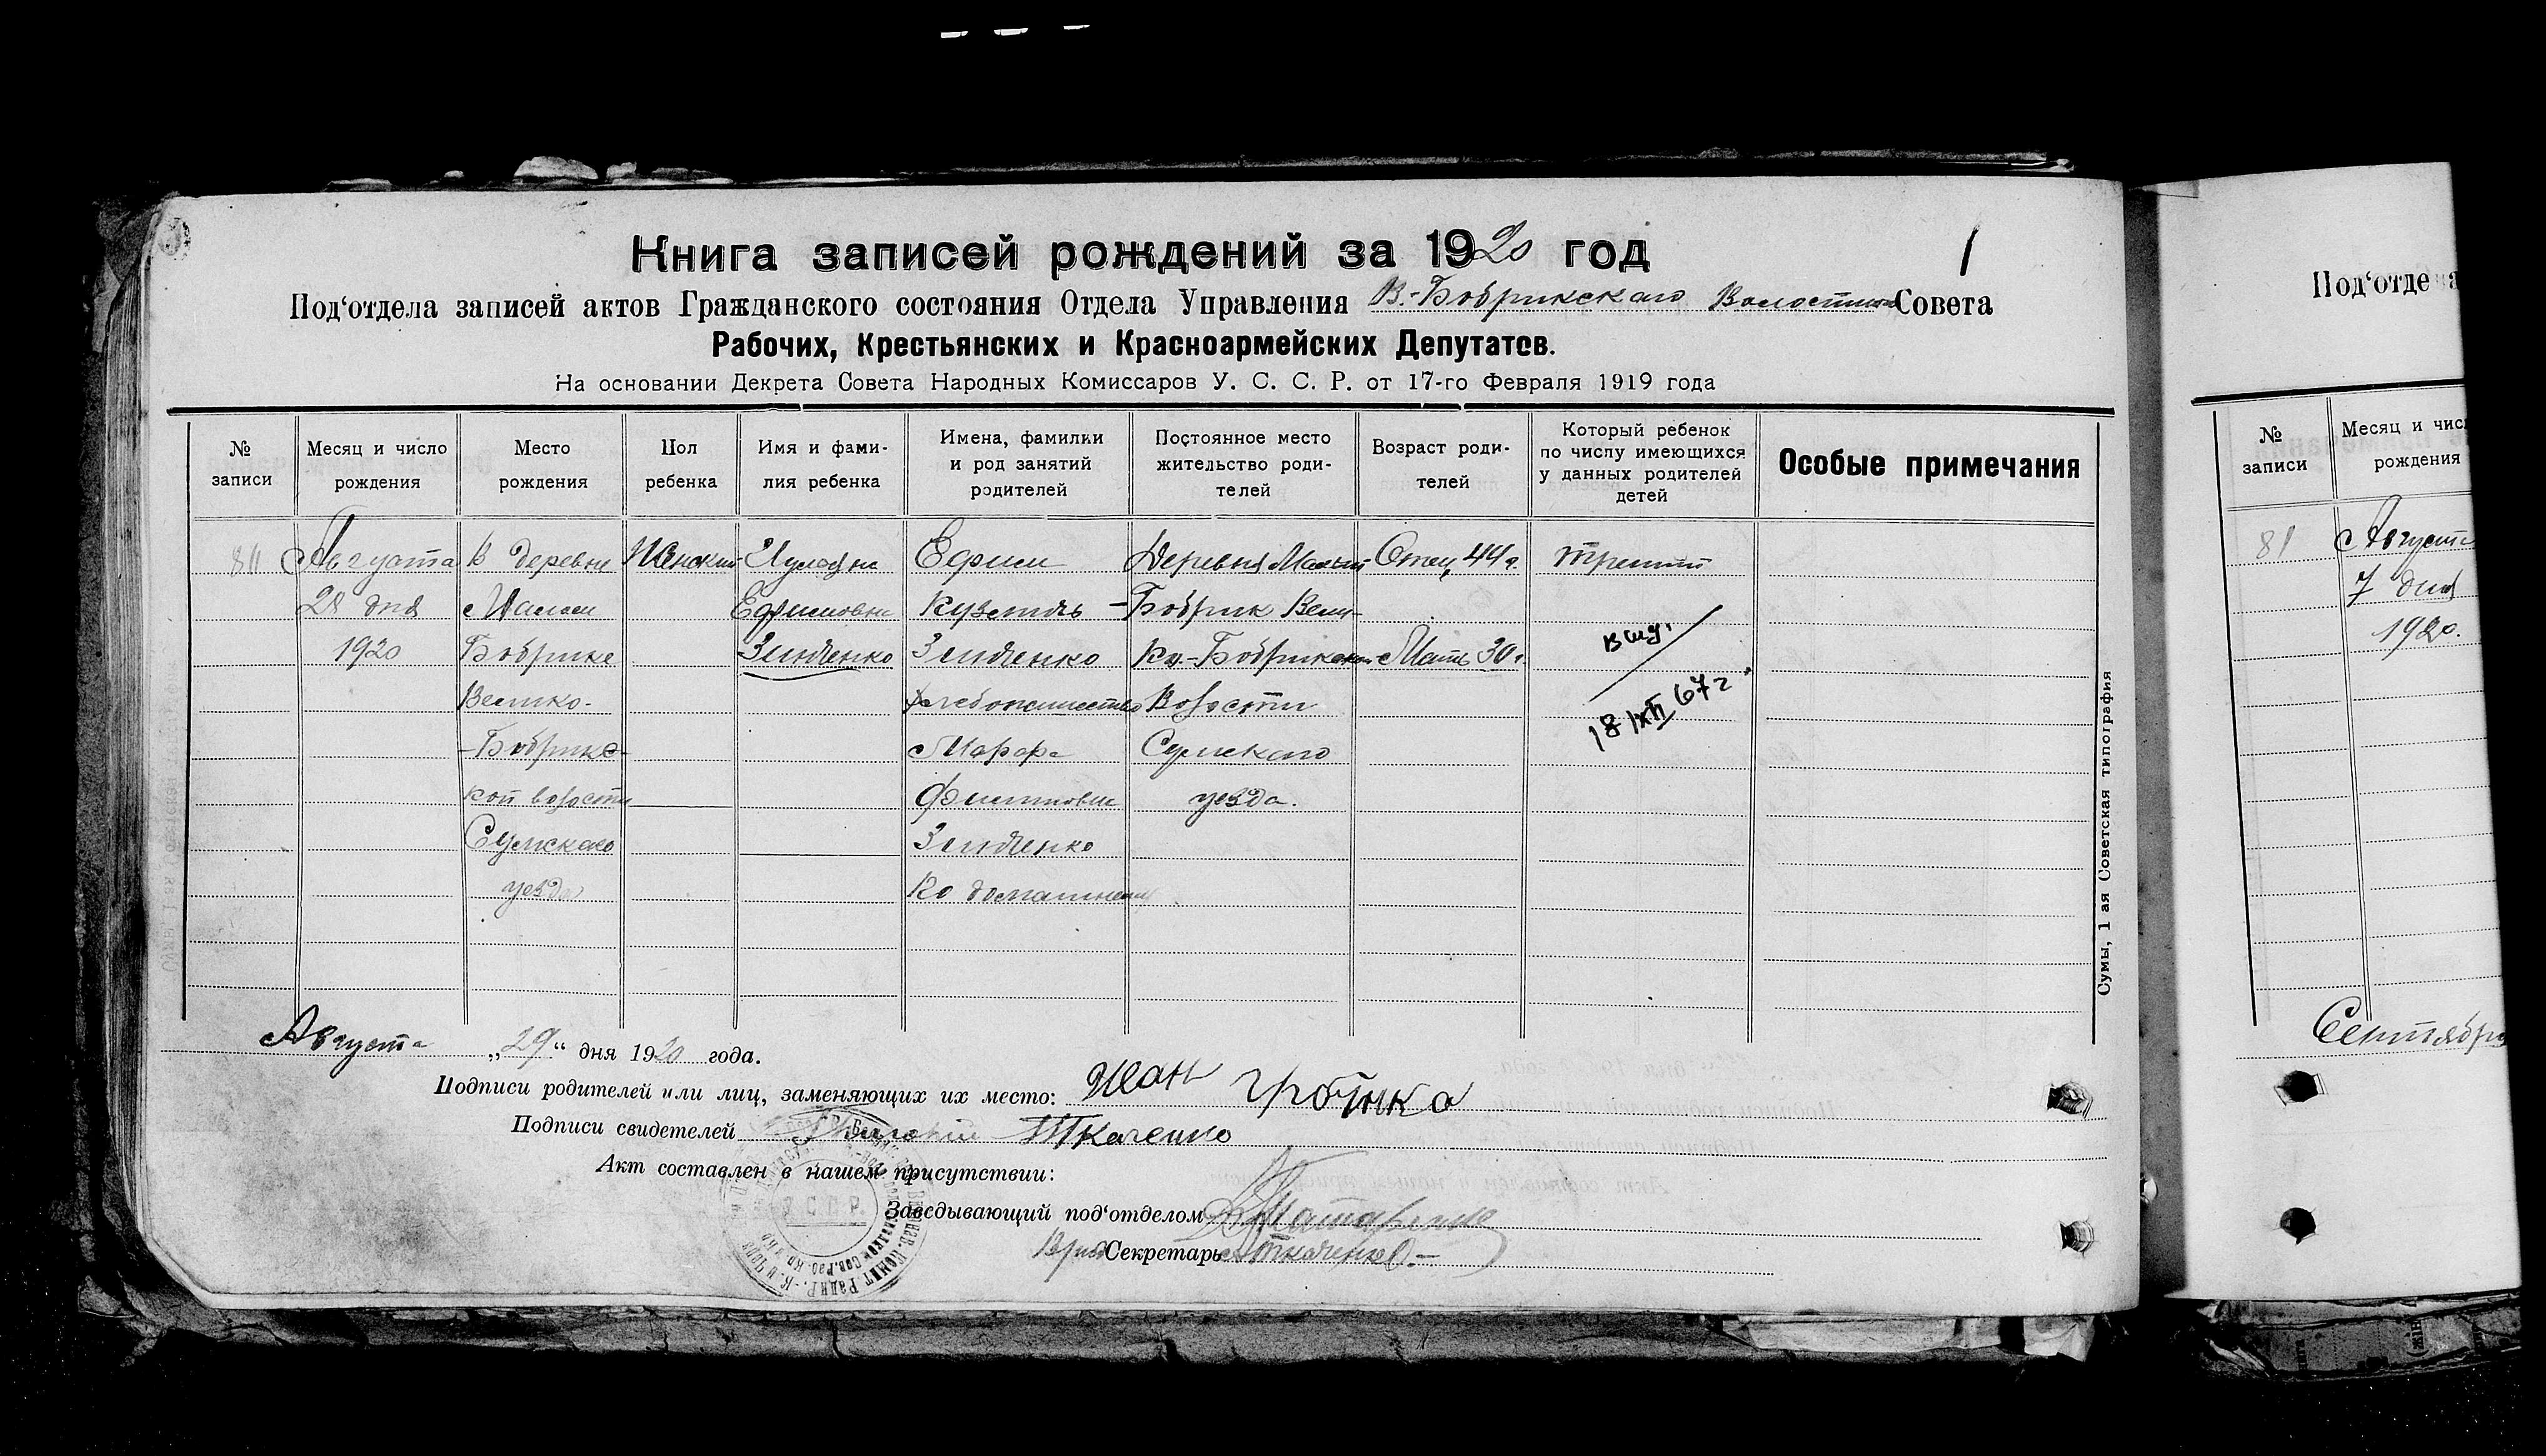 Книга записей рождений за 1920 год
1
Под‘отдела записей актов Гражданского состояния Отдела Управления В.-Бобрикскаго Совета
Рабочих, Крестьянских и Красноармейских Депутатов.
На основании Декрета Совета Народных Комиссаров У. С. С. Р. от 17-го Февраля 1919 года
№ записи
Месяц и число рождения
Место рождения
Пол ребенка
Имя и фами-
лия ребенка
Имена, фамилии
и род занятий
родителей
Постоянное место
жительство роди-
телей
Возраст роди-
телей
Который ребенок
по числу имеющихся
у данных родителей
детей
Особые примечания
Августа
28 дня
1920
В деревне
Малом
Бобрике
Велико-
-Бобрикс-
кой волости
Сумскаго
уезда
Женский
Ефимовна
Зинченко
Ефим
Кузьмичь
Зинченко
хлебопашество
Марфа
Филиповна
Зинченко
Деревня Малый
-Бобрик Вели-
ко-Бобрикской
Волости
Сумскаго
уезда.
Отец 44 г.
Мать 30 г.
третий
18/XII 67 г.
Сумы, 1 ая Советская типография
Августа „29“ дня 1920 года.
Подписи родителей или лиц, заменяющих их место: Иван
Подписи свидетелей Ткаченко
Акт составлен в нашем присутствии:
Заведывающий под‘отделом
Секретарь Ткаченко
Под‘отдела
№ записи
Месяц и чис
рождения
81
Августа
7 дня
1920.
Сентября